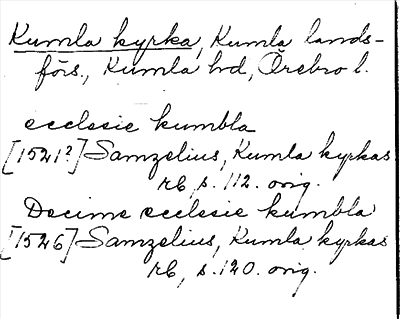 Kumla kyrka, Kumla lands-
förs., Kumla hd, Örebro l.
ecclesie kumbla
[1521?] Samzelius, Kumla kyrkas
rb, s. 112. orig.
Decime ecclesie kumbla
[1526] Samzelius, Kumla kyrkas
rb, s. 120. orig.